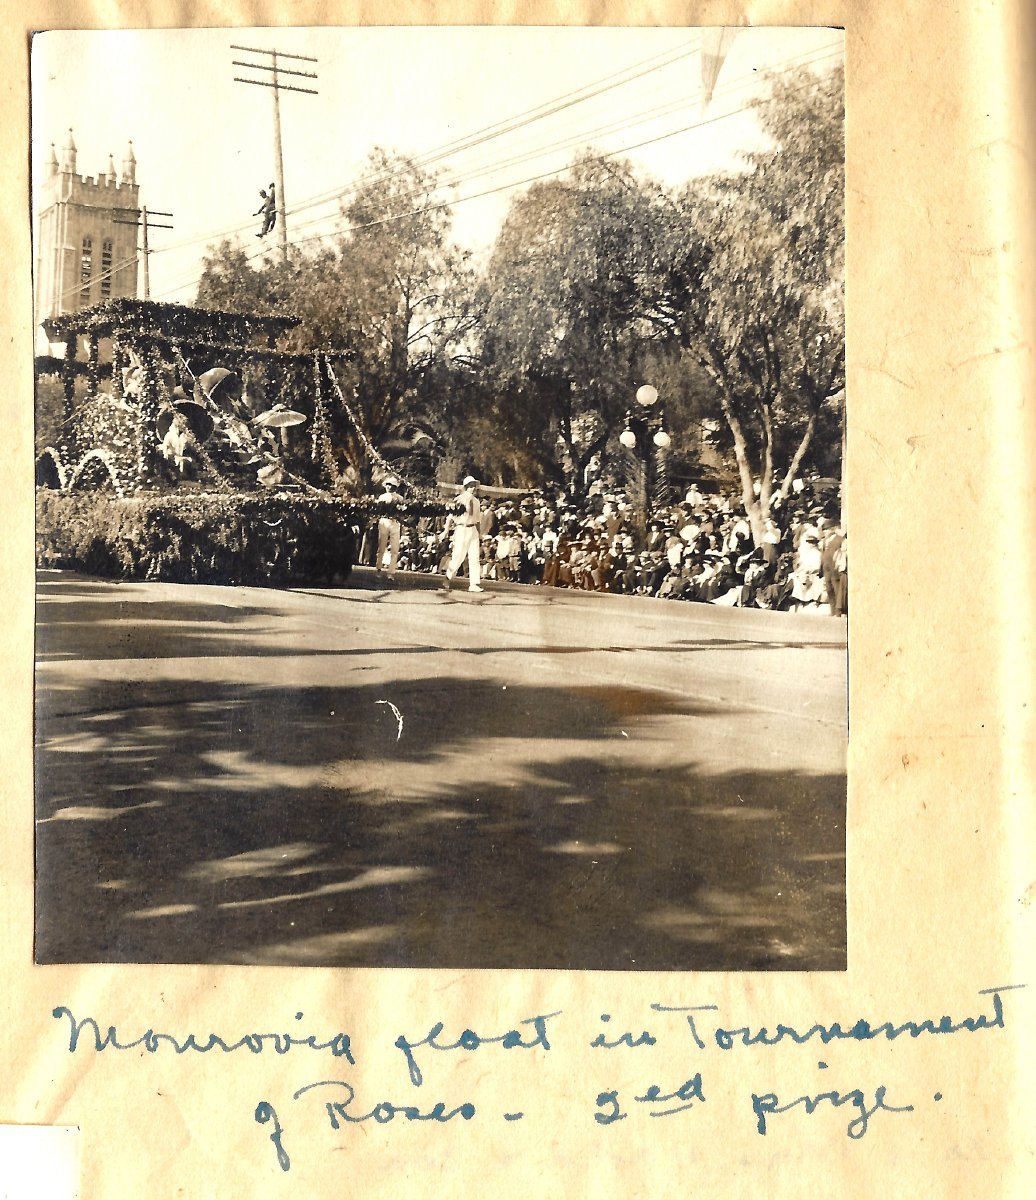 Monrovia float in Tournament
of Roses - 2ed prize.